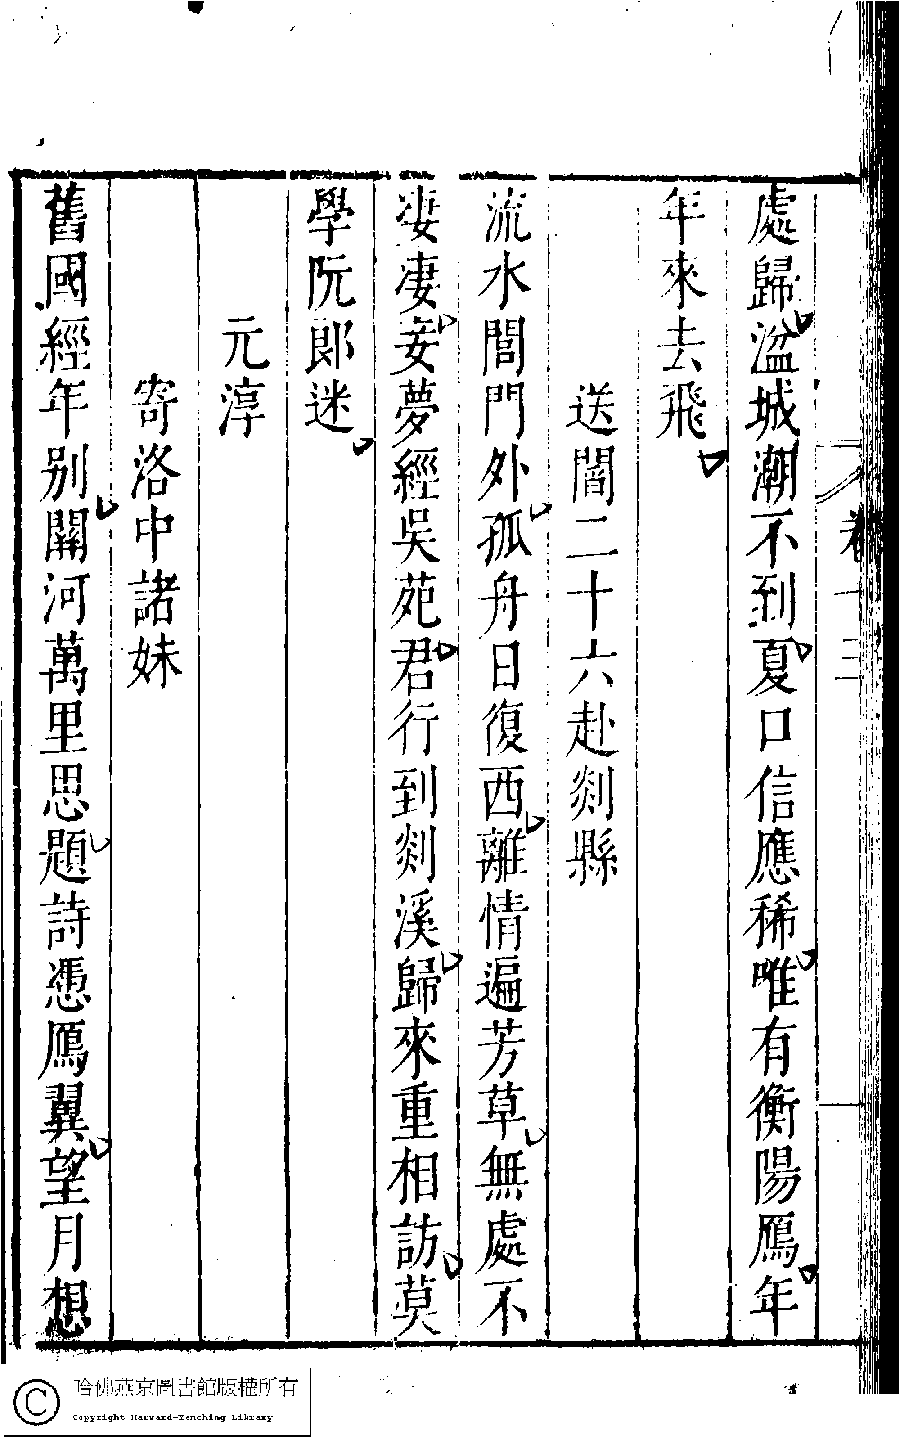 處歸湓城潮不到夏口信應稀唯有衡陽鴈年
年來去飛
送閻二十六赴剡縣
流水閶門外孤舟日復西離情遍芳草無處不
淒淒妾夢經吳苑君行到剡溪歸來重相訪莫
學阮郎迷
元淳
寄洛中諸妹
舊國經年別關河萬里思題詩憑鴈翼望月想
卷十三
哈佛燕京圖書館版權所有
Copyright Harvard-Yenching Library